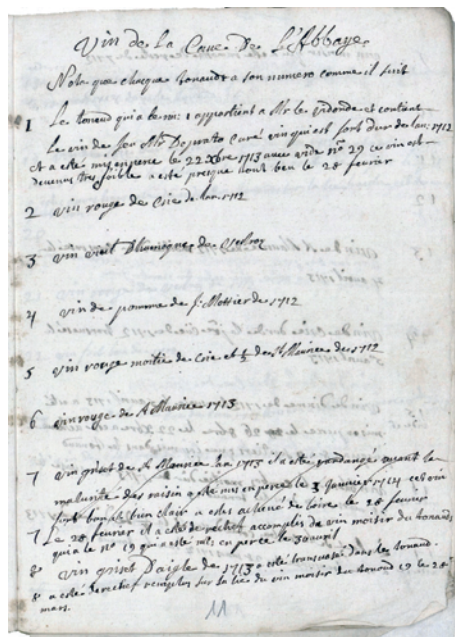 Vin de La Cave De L'Abbaye
Nota que chaque tonaud a son numero comme il suit
1 Le tonoud qui a le no: 1 appartient a Mr le et contient
Le vin de feu Mr Curé vin qui est fort dur de lan: 1712
et a esté mis en perce le 22 Xbre 1713 avec vide no 29 ce vin est
devenus tres foible a esté presque tout beu le 28 fevrier
2 vin rouge de Csie de lan: 1712
3 vin vieil D'humagne de Vetroz
4 vin de pomme de Sr Mottier de 1712
5 vin rouge moitie de Csie et ½ de St Maurice de 1712
6 vin rouge de St Maurice 1713
7 vin griset de St Maurice 1713 il a esté vandangé avant la
maturité des raisin a esté mis en perce le 3 Janvier 1714 cet vin
fort bon et bien clair a esté achevé de boire le 28 fevrier
7 Le 28 fevrier il a esté de rechef accomplis de vin moisir du tonaud
qui a le no 19 qui a esté mis en perce le 30 avril
8 Vin griset D'aigle de 1713 a esté transvasé dans les tonaud.
8 a esté de rechef remplis sur la lie du vin moisir du tonaud 19 le 28
mars.
11